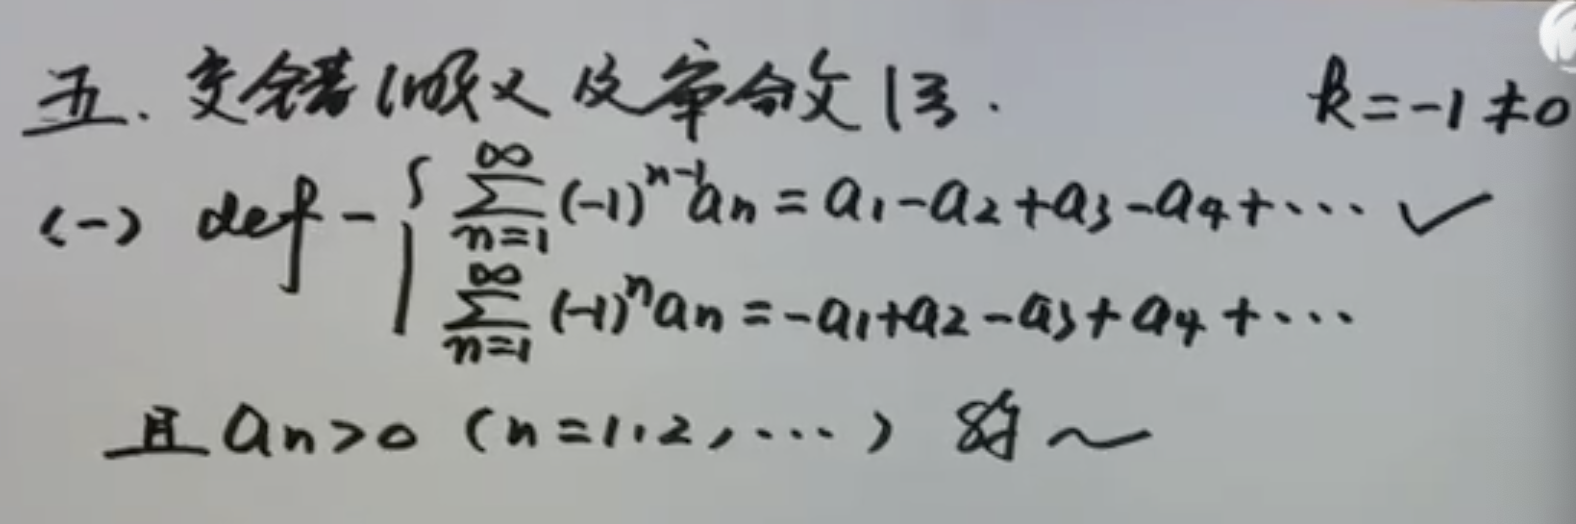 五. 交错级数及审敛法 k=-1≠0
(一) def - { ∑_{n=1}^{∞} (-1)^{n-1} a_n = a_1 - a_2 + a_3 - a_4 + ··· ✓
∑_{n=1}^{∞} (-1)^n a_n = -a_1 + a_2 - a_3 + a_4 + ···
且 a_n > 0 (n=1,2,···) 称 ~